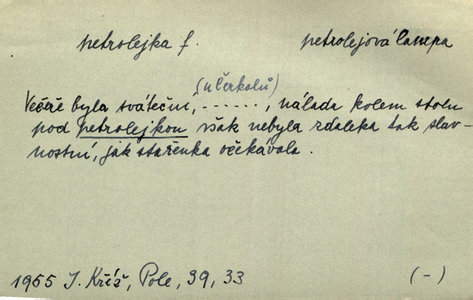 petrolejka f. petrolejová lampa
(u Čerkolů)
Večeře byla sváteční, - - - - - -, nálada kolem stolu
pod petrolejkou však nebyla zdaleka tak slav-
nostní, jak stařenka očekávala.
1955 J. Kříž, Pole, 39, 33 (-)